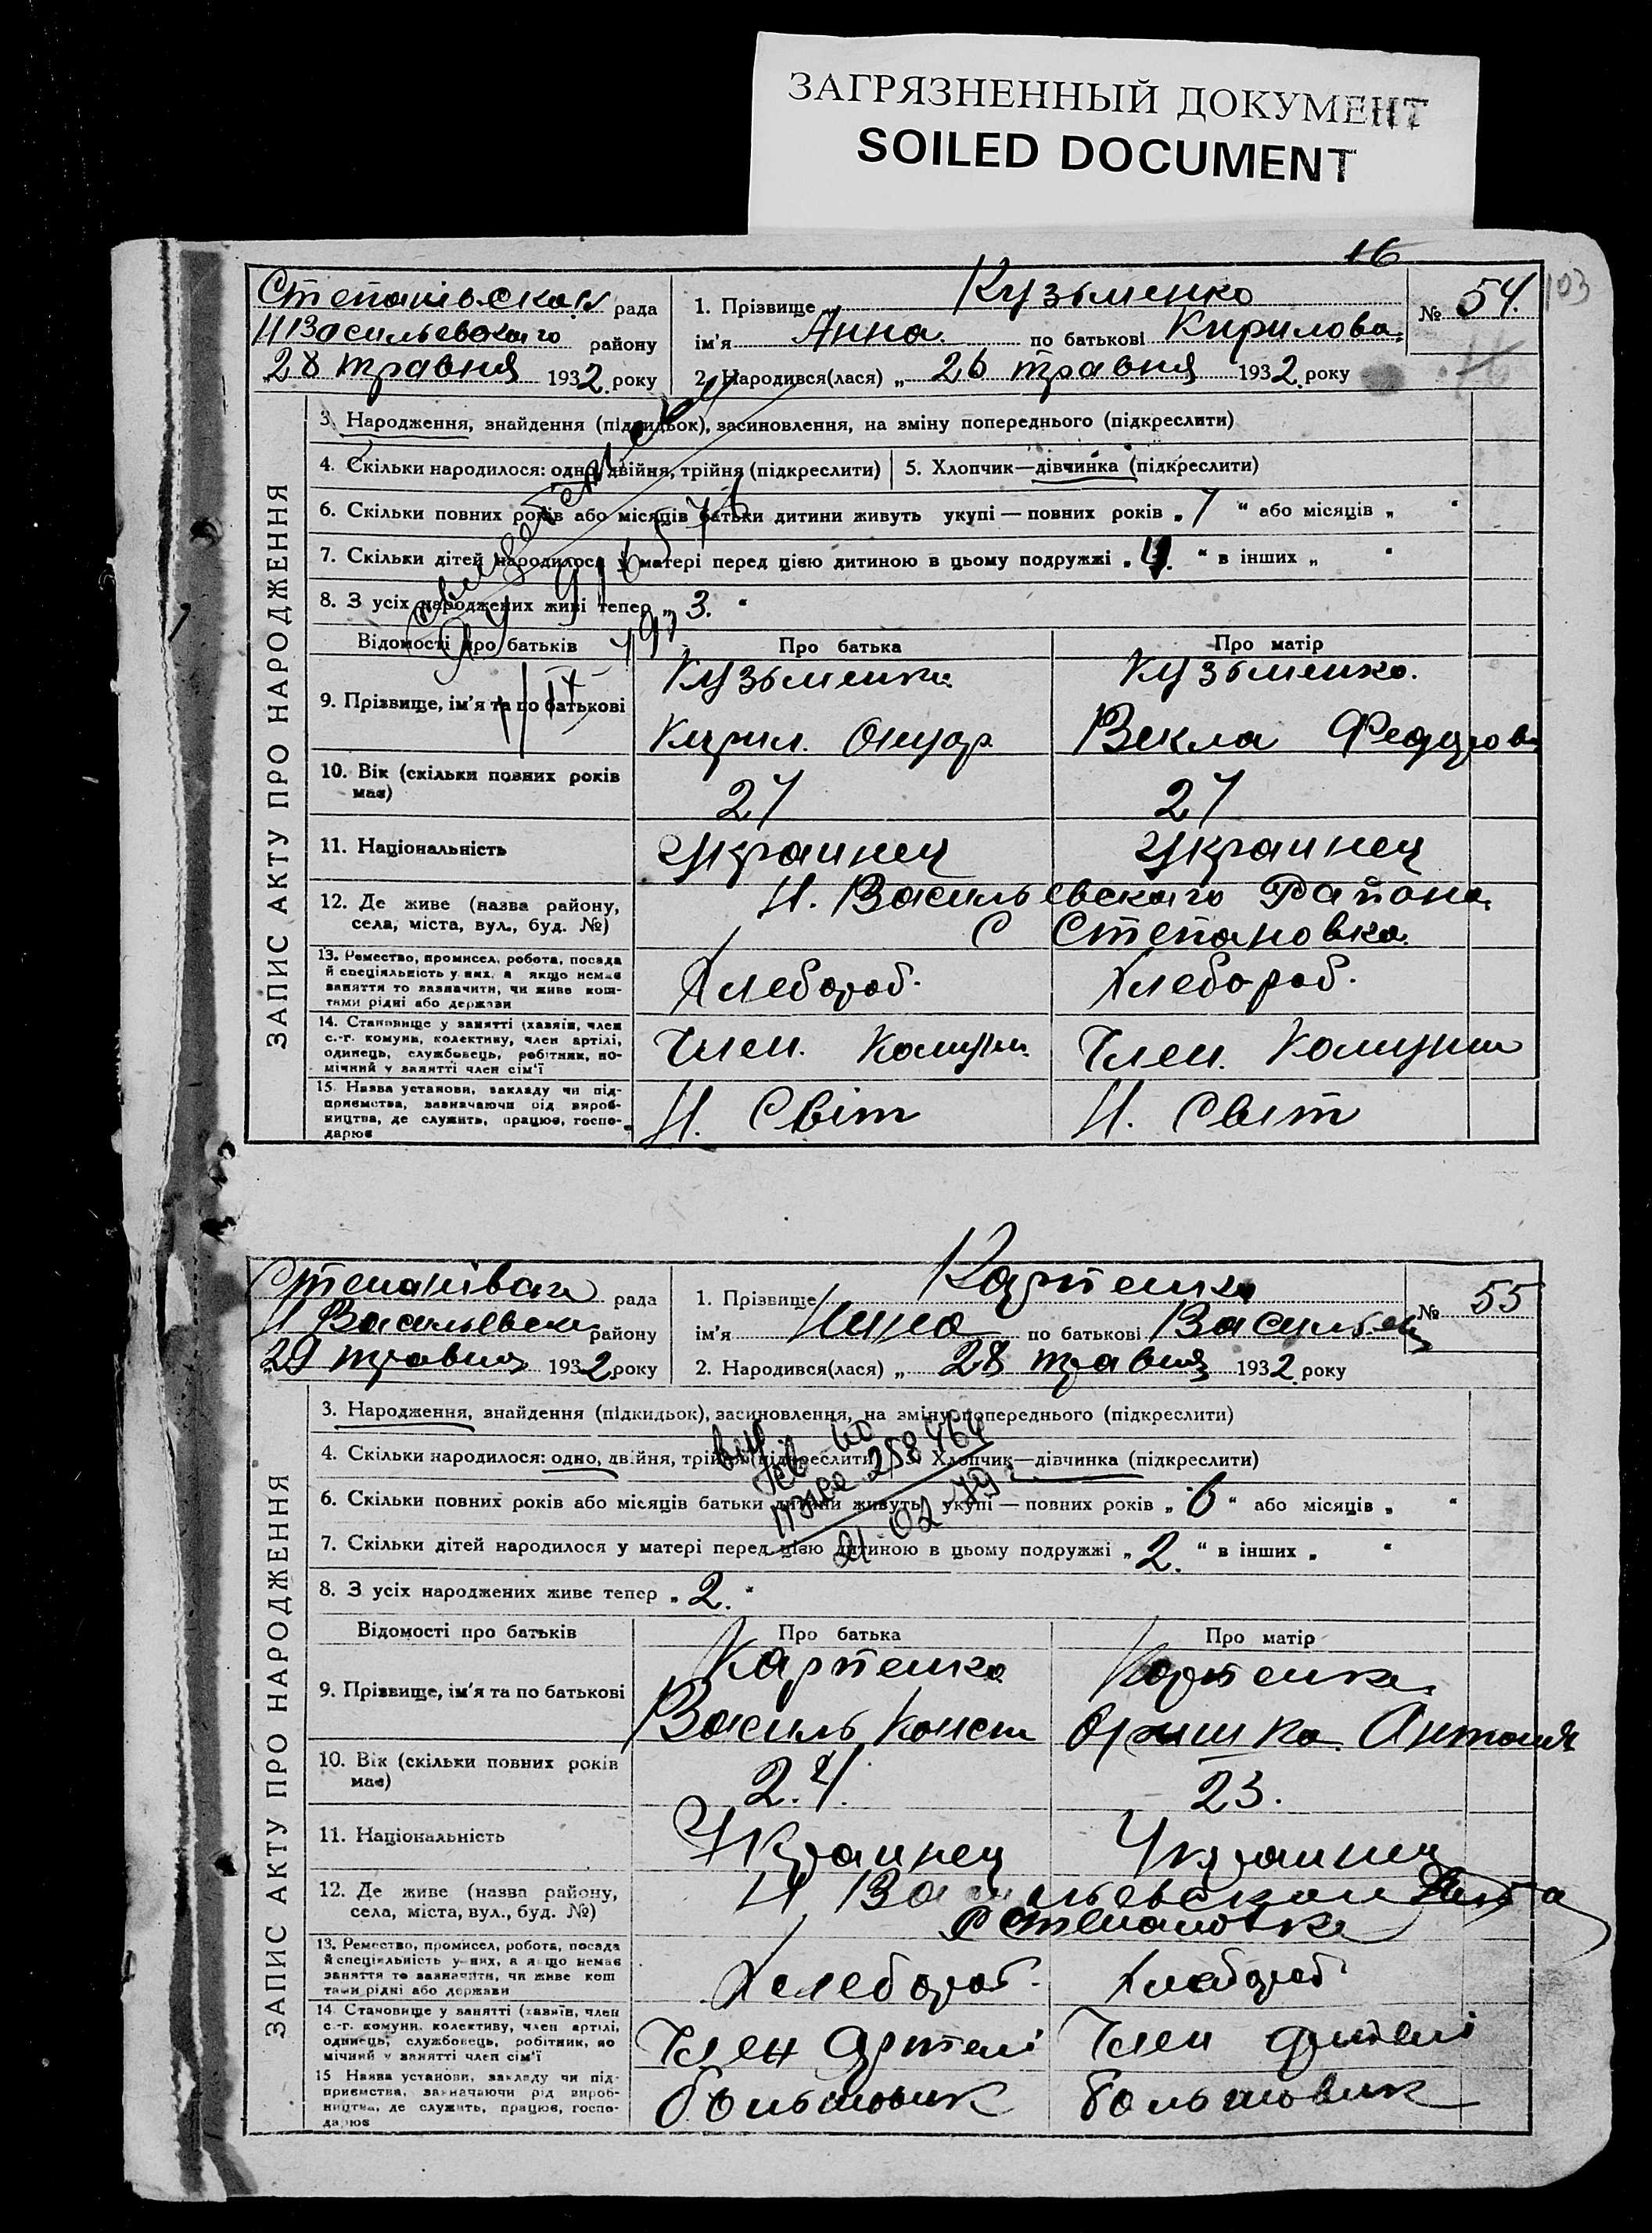 ЗАГРЯЗНЕННЫЙ ДОКУМЕНТ
SOILED DOCUMENT
16
103
Степанівская рада
Н Васильевскаго району
„28 травня 1932 року
1. Прізвище Кузьменко
ім’я Анна по батькові Кирилова
2. Народився(лася) „ 26 травня 1932 року
№ 54.
16
ЗАПИС АКТУ ПРО НАРОДЖЕННЯ
3. Народження, знайдення (підкидьок), засиновлення, на зміну попереднього (підкреслити)
4. Скільки народилося: одно, двійня, трійня (підкреслити) 5. Хлопчик—дівчинка (підкреслити)
6. Скільки повних років або місяців батьки дитини живуть укупі — повних років „ 7 “ або місяців „ “
7. Скільки дітей народилося у матері перед цією дитиною в цьому подружжі „ 4. “ в інших „ “
8. З усіх народжених живі тепер „ 3. “
Відомості про батьків Про батька Про матір
9. Прізвище, ім’я та по батькові
Кузьменко Кузьменко.
Кирил. Векла Федоров
10. Вік (скільки повних років має)
27 27
11. Національність Украинец Украинец
12. Де живе (назва району, села, міста, вул., буд. №)
Н. Васильевскаго Района
С Степановка.
13. Ремество, промисел, робота, посада й спеціяльність у них, а якщо немає заняття то зазначити, чи живе коштами рідні або держави
Хлебороб. Хлебороб.
14. Становище у занятті (хазяїн, член с.-г. комуни, колективу, член артілі, одинець, службовець, робітник, помічний у занятті член сім’ї
Член. Комуни Член. Комуни
15. Назва установи, закладу чи підприємства, зазначаючи рід виробництва, де служить, працює, господарює
Н. Світ Н. Світ
Степанівская рада
Н Васильевск району
„29 травня 1932 року
1. Прізвище Карпенко
ім’я Нина по батькові Васильев
2. Народився(лася) „ 28 травня 1932 року
№ 55
ЗАПИС АКТУ ПРО НАРОДЖЕННЯ
3. Народження, знайдення (підкидьок), засиновлення, на зміну попереднього (підкреслити)
4. Скільки народилося: одно, двійня, трійня (підкреслити) 5. Хлопчик—дівчинка (підкреслити)
258464
21 02 79
6. Скільки повних років або місяців батьки дитини живуть укупі — повних років „ 6 “ або місяців „ “
7. Скільки дітей народилося у матері перед цією дитиною в цьому подружжі „ 2. “ в інших „ “
8. З усіх народжених живе тепер „ 2. “
Відомості про батьків Про батька Про матір
9. Прізвище, ім’я та по батькові
Карпенко Карпенко
Василь Конст Оришка Антонів
10. Вік (скільки повних років має)
24. 23.
11. Національність Украинец Украинец
12. Де живе (назва району, села, міста, вул., буд. №)
Н Васильевскаго
с Степановка
13. Ремество, промисел, робота, посада й спеціяльність у них, а якщо немає заняття то зазначити, чи живе коштами рідні або держави
Хлебороб. Хлебороб
14. Становище у занятті (хазяїн, член с.-г. комуни, колективу, член артілі, одинець, службовець, робітник, помічний у занятті член сім’ї
Член Артелі Член артелі
15. Назва установи, закладу чи підприємства, зазначаючи рід виробництва, де служить, працює, господарює
Большовик Большовик